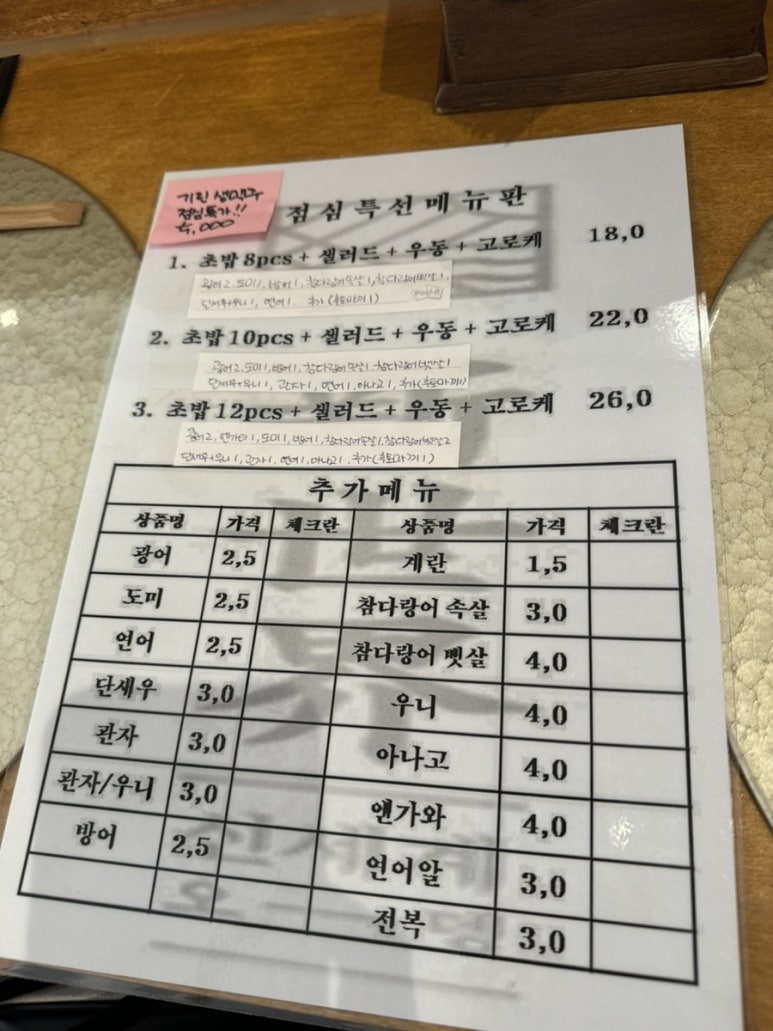 기린 생맥주
점심특가!!
5,000
점심특선메뉴판
1. 초밥 8pcs + 셀러드 + 우동 + 고로케 18,0
광어2, 도미1, 방어1, 참다랑어속살1, 참다랑어뱃살1,
단새우+우니1, 연어1, 추가(후토마끼1)
2. 초밥 10pcs + 셀러드 + 우동 + 고로케 22,0
광어2, 도미1, 방어1, 참다랑어속살1, 참다랑어뱃살1
단새우+우니1, 관자1, 연어1, 아나고1, 추가(후토마끼1)
3. 초밥 12pcs + 셀러드 + 우동 + 고로케 26,0
광어2, 엔가와1, 도미1, 방어1, 참다랑어속살1, 참다랑어뱃살2
단새우+우니1, 관자1, 연어1, 아나고1, 추가(후토마끼1)
추가메뉴
상품명 가격 체크란 상품명 가격 체크란
광어 2,5 계란 1,5
도미 2,5 참다랑어 속살 3,0
연어 2,5 참다랑어 뺏살 4,0
단세우 3,0 우니 4,0
관자 3,0 아나고 4,0
관자/우니 3,0 앤가와 4,0
방어 2,5 연어알 3,0
전복 3,0